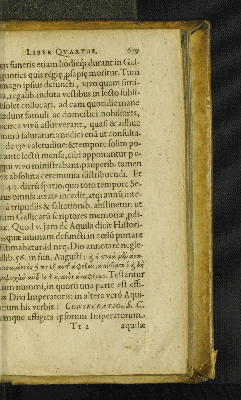 LIBER QVARTVS. 659
as funeris etiam hodieq; durant in Gal-
quories quis regie psapię moritur. Tum
imago ipsius defuncti, vivo quam simi-
ia, regalib. induta vestibus in lecto subli-
solet collocari, ad eam quotidie mane
edunt famuli ac domestici nobilores,
circa vivũ assueverant, quasi & adhuc
nimũ salutatur: medici etiã ut consulta-
de eja valetudine: & tempore solito po
ante lecti mensa, cibi apponuntur p e-
qui vivo ministrabant, pauperib. tamen
ex absoluta ceremonia distribuendi. Et
40. diurũ spatio, quo toto tempore Se-
ius omnis atrate incedit, atq; annũ inte-
a tripudiis & saltationib. abstinetur: ut
um Gallicarũ scriptores memoriæ, pdi-
ac. Quod v. jam de Aquila dicit Histori-
usque animam defuncti in cœlũ portare
istimabatur id neq; Dio annotare negle-
lib. 56. in fun. Augusti:
Testantur
um nummi, in quorũ una parte est effi-
es Divi Imperatoris: in altera verò Aqui-
tum his verbis: CONSECRATIO. S. C.
emque effigies ipsorum Imperatorum,
Tt 2 aquilæ